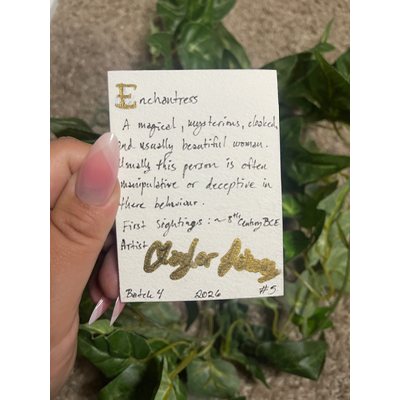 Enchantress
A magical, mysterious, cloaked,
and usually beautiful woman.
Usually this person is often
manipulative or deceptive in
there behaviour.
First Sightings: ~ 8th Century BCE
Artist
Batch 4 2026 #5